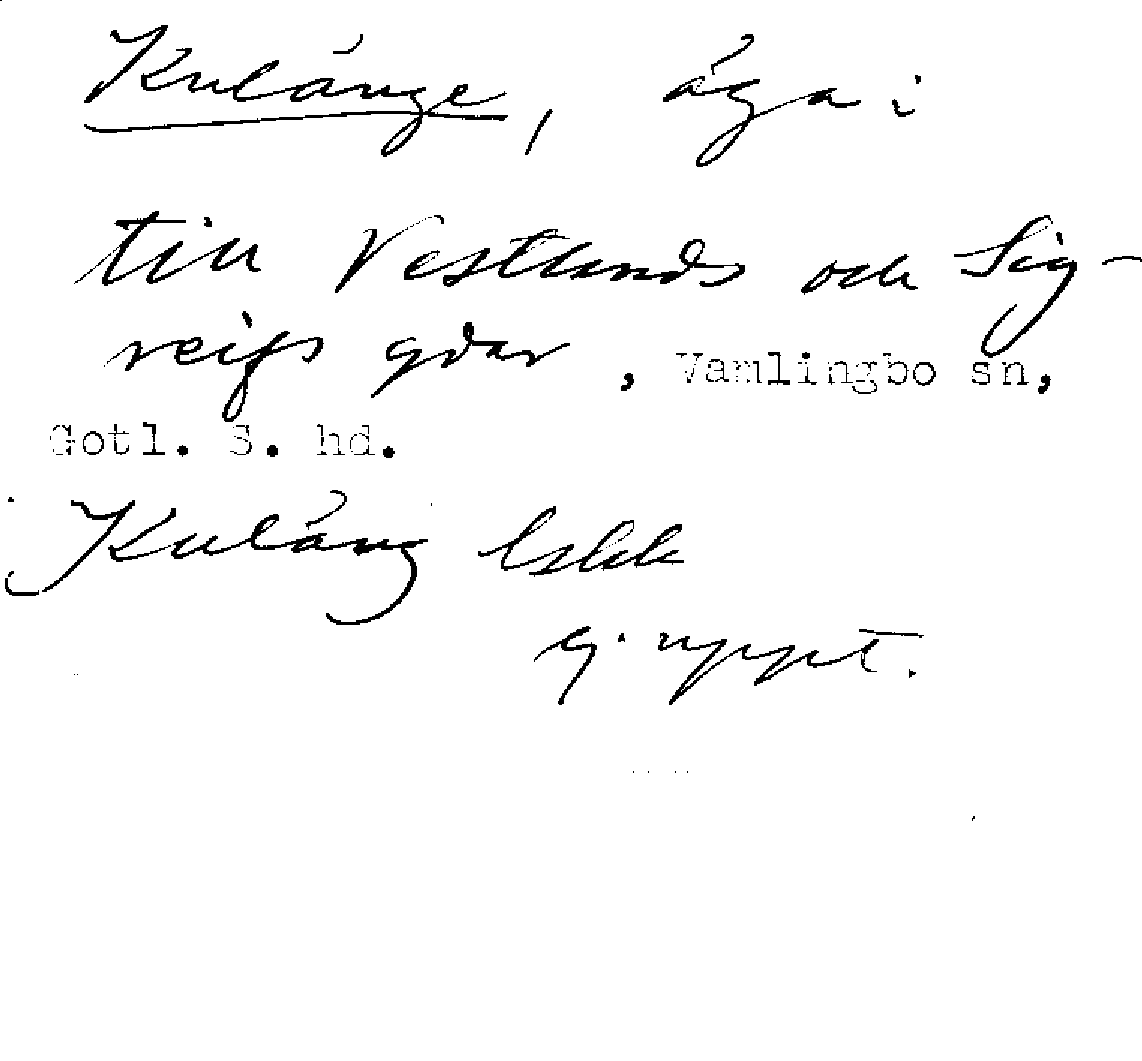 Kulänge, äga i
till Vestlands och Sig-
reifs gdar, Vamlingbo sn,
Gotl. S. hd.
Kuläng
ej uppt.